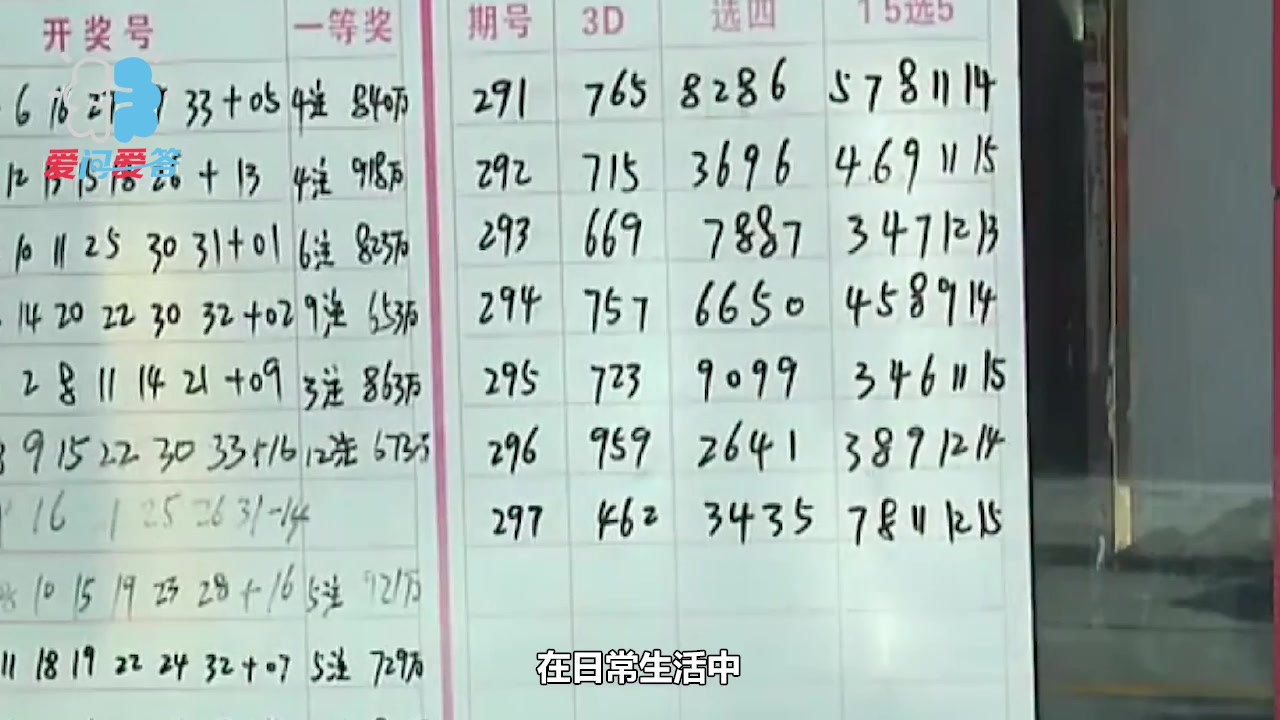 开奖号 一等奖 期号 3D 选四 15选5
6 16 33+05 4注 840万 291 765 8286 5 7 8 11 14
爱问爱答
12 13 15 18 26 + 13 4注 918万 292 715 3696 4 6 9 11 15
10 11 25 30 31+01 6注 825万 293 669 7887 3 4 7 12 13
14 20 22 30 32+02 9注 653万 294 757 6650 4 5 8 9 14
2 8 11 14 21 +09 3注 863万 295 723 9099 3 4 6 11 15
9 15 22 30 33+16 12注 673万 296 959 2641 3 8 9 12 14
16 25 26 31-14 297 462 3435 7 8 11 12 15
10 15 19 23 28+16 5注 921万
11 18 19 22 24 32+07 5注 729万
在日常生活中